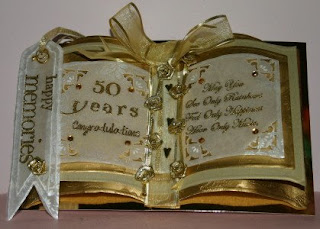 happy
memories
50
Years
Congratulations
May You
See Only Rainbows
Feel Only Happiness
Hear Only Music